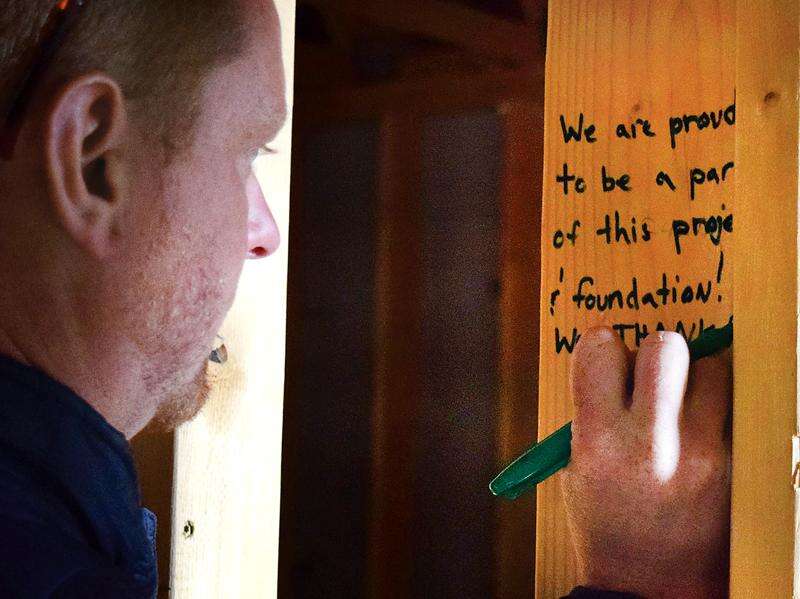 We are proud
to be a par
of this proje
& foundation!
We THANK